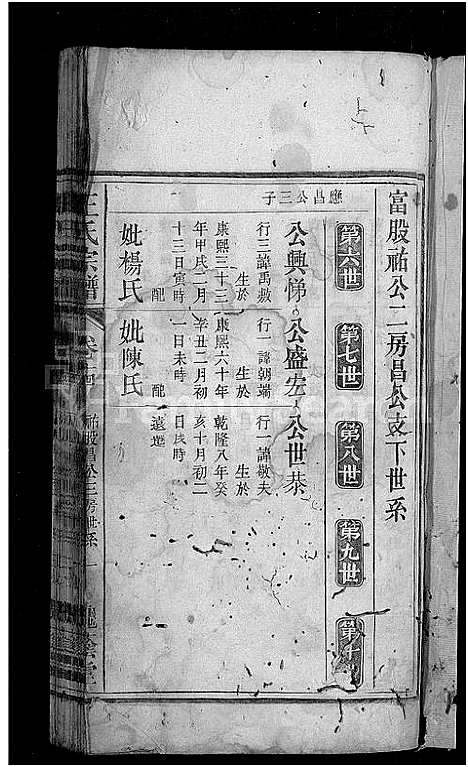 富股祐公二房昌公支下世系
第六世
第七世
第八世
第九世
第十
應昌公三子
公興悌
公盛宏
公世恭
行三諱禹敷
生於
康熙三十三
年甲戌二月
十三日寅時
配
妣楊氏
行一諱朝端
生於
康熙六十年
辛丑二月初
一日未時
配
妣陳氏
行一諱敬夫
生於
乾隆八年癸
亥十月初二
日戌時
遠遊
王氏宗譜
卷
祐股昌公三房世系
一